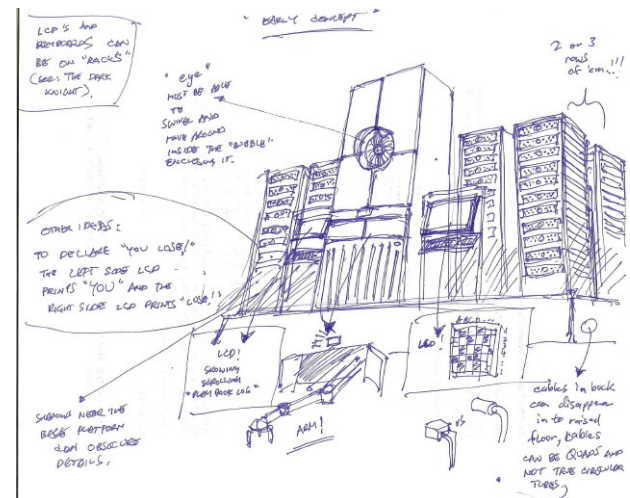 " EARLY CONCEPT "
LCD'S AND
KEYBOARDS CAN
BE ON "RACKS"
(SEE: THE DARK
KNIGHT).
"eye"
MUST BE ABLE
TO
SWIVEL AND
MOVE AROUND
INSIDE THE "BUBBLE"
ENCLOSING IT.
2 or 3
rows
of 'em...!!
OTHER IDEAS:
TO DECLARE "YOU LOSE!"
THE LEFT SIDE LCD
PRINTS "YOU" AND THE
RIGHT SIDE LCD PRINTS "LOSE!"
LCD!
SHOWING
SCROLLING
"PLAY BACK LOG"
ARM!
LCD!
ABCD...
1
2
3
4
VS
SHADOWS NEAR THE
BASE PLATFORM
CAN OBSCURE
DETAILS.
cables in back
can disappear
in to raised
floor, cables
CAN BE QUADS AND
NOT TRUE CIRCULAR
TUBES.